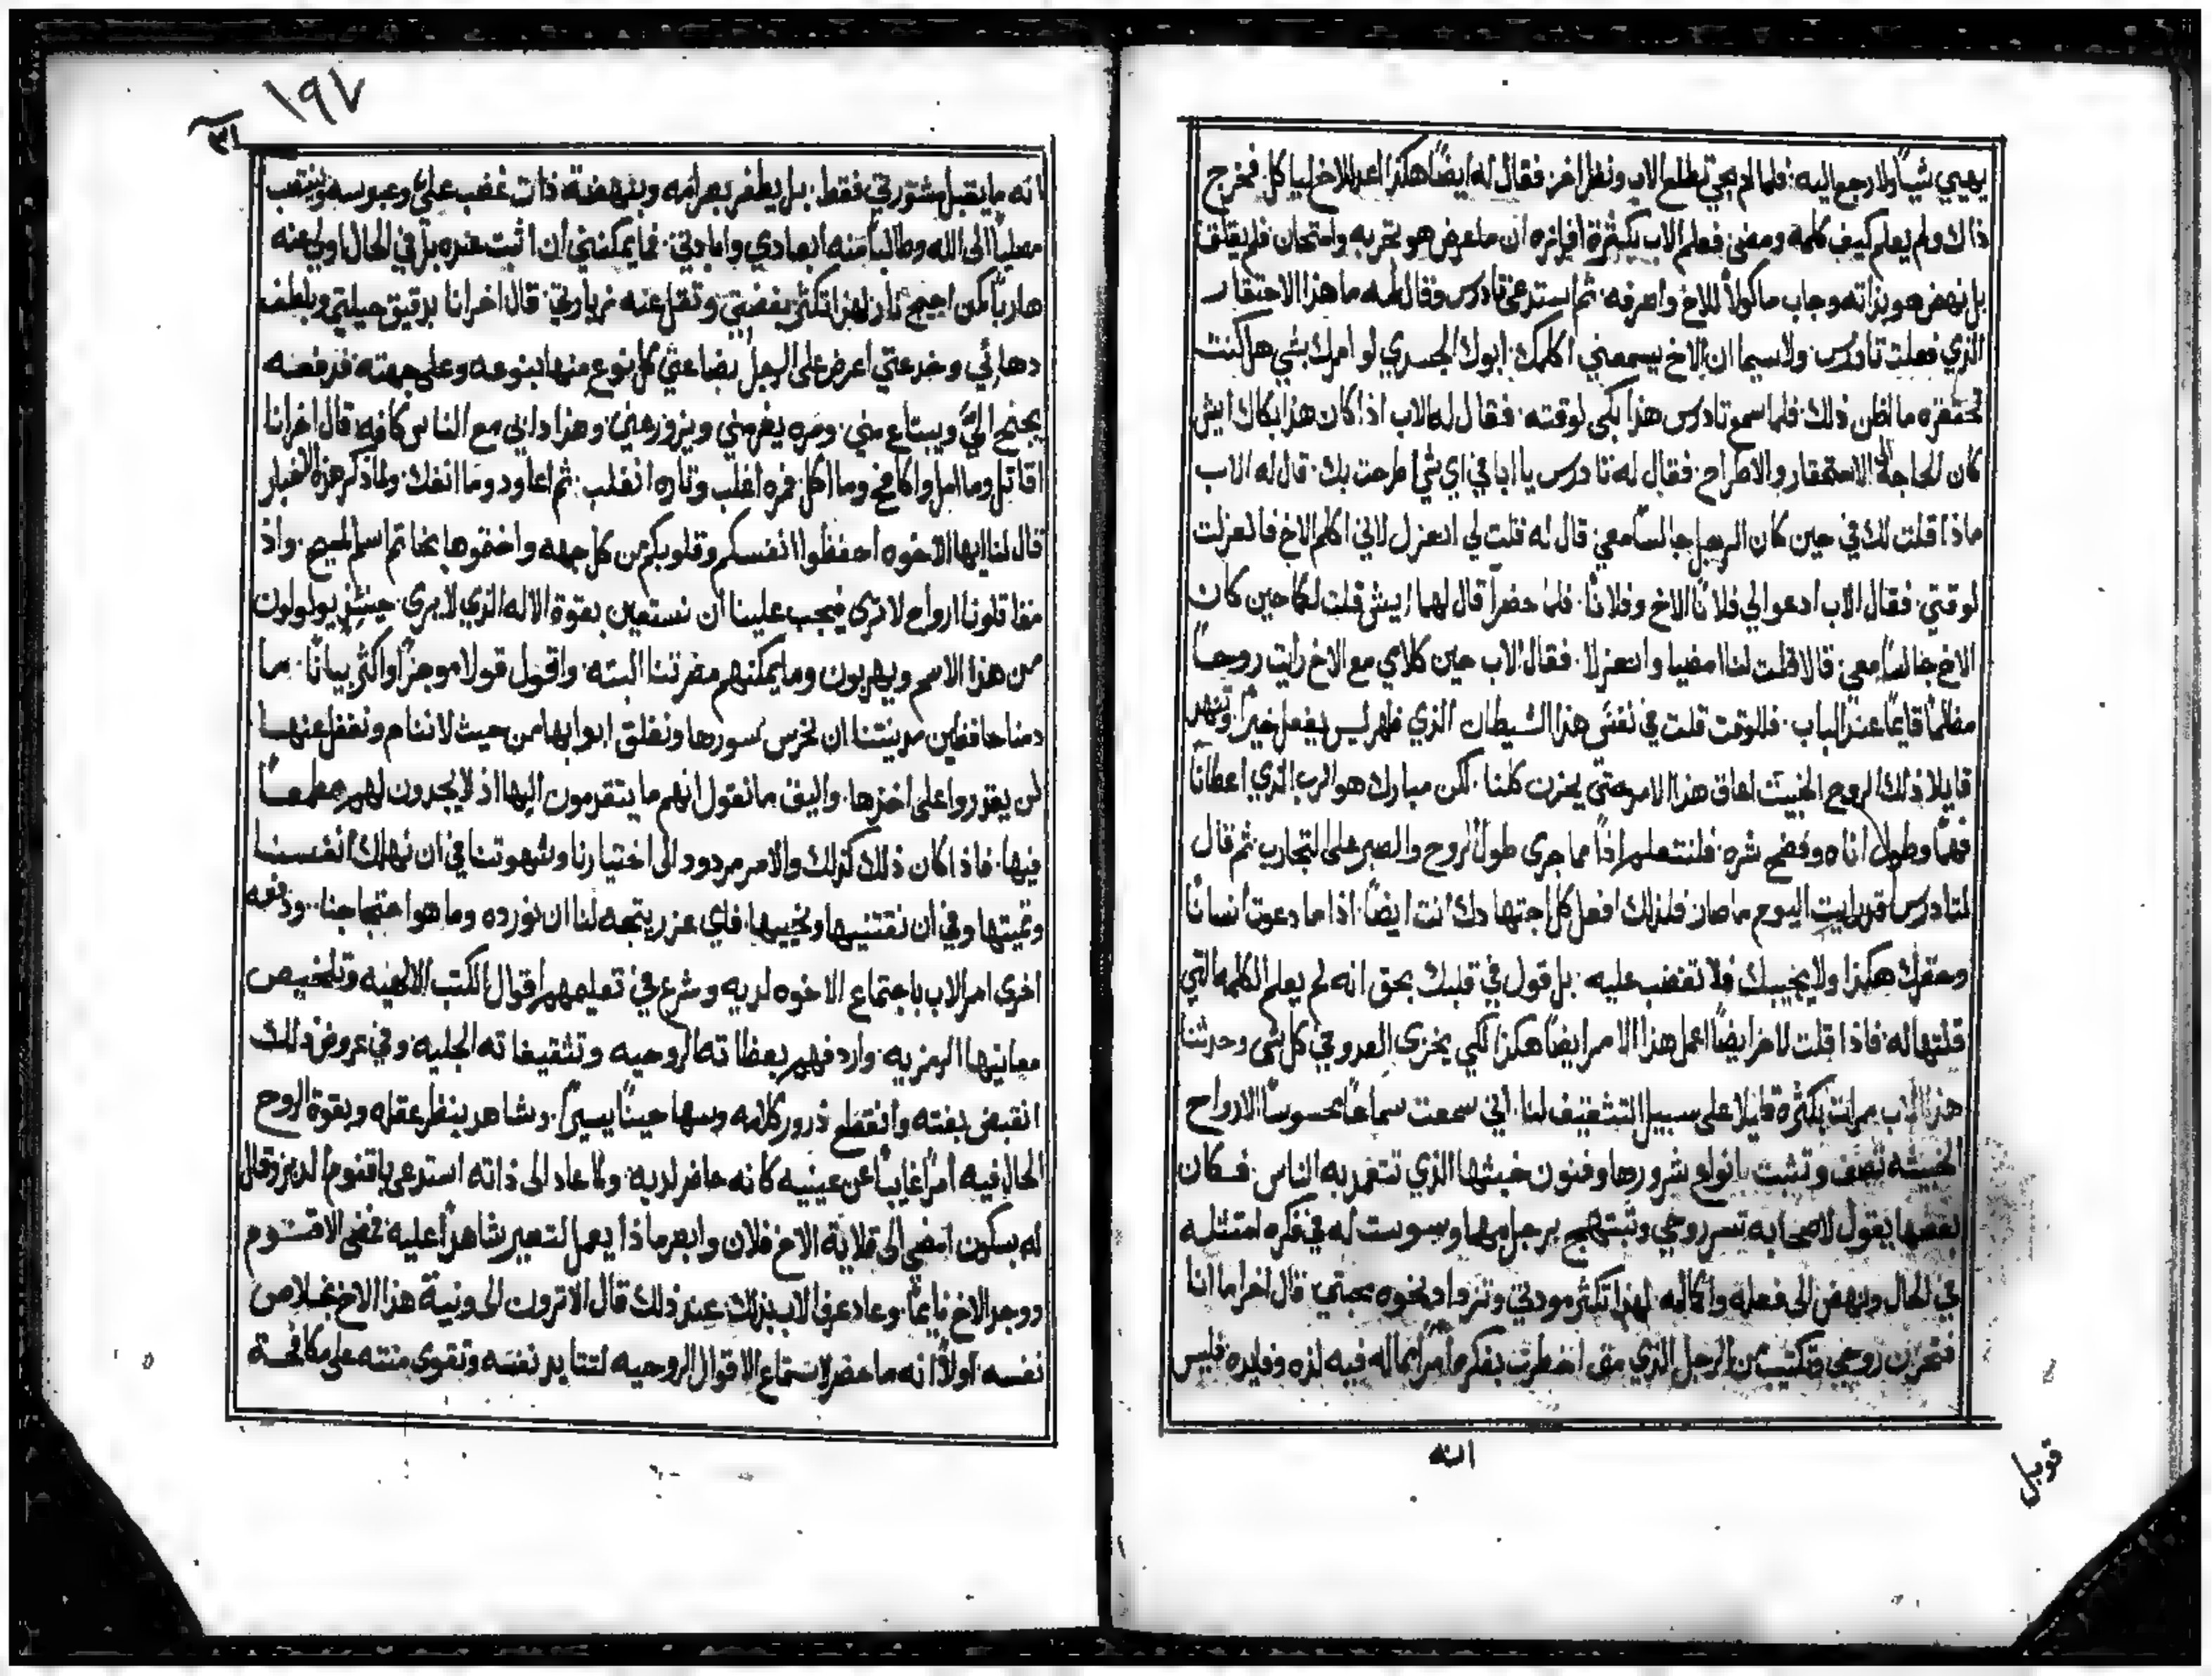 يهيي شياً ولا رجع اليه : فلما لم يجي تطلع الاب ونظر اخر فقال له ايضاً هكذا اعد للاخ ليا كل فخرج
ذاك ولم يعلم كيف كلمه ومضى فعلم الاب بكثرة افرازه ان ما عرض هو تجربه وامتحان فلم يقلق
بل نهض هو بذاته وجاب ماكولاً للاخ واصرفه ثم استدعى تادرس وقال له ما هذا الاحتقار
الذي فعلت تادرس ولا سيما ان الاخ يسمعني اكلمك ابوك الجسدي لو امرك بشي هل كنت
تحتقره ما اظن ذلك فلما سمع تادرس هذا بكى لوقته فقال له الاب اذا كان هذا بكاك ايش
كان الحاجة الى الاستحقار والاطراح فقال له تادرس يا ابا في اي شي اطرحت بك قال له الاب
ماذا قلت لك في حين كان الرجل جالساً معي قال له قلت لي انعزل لاني اكلم الاخ فانعزلت
لوقتي فقال الاب ادعوا لي فلاناً الاخ وفلاناً فلما حضرا قال لهما ايش قلت لكما حين كان
الاخ جالساً معي قالا قلت لنا امضيا وانعزلا فقال الاب حين كلامي مع الاخ رايت روحاً
مظلماً قايماً عند الباب فللوقت قلت في نفسي هذا الشيطان الذي ظهر ليس يفعل خيراً
قايلا ذلك الروح الخبيث اعاق هذا الامر حتى يحزن كلنا لكن مبارك هو الرب الذي اعطانا
فهماً وطول اناه وفضح شره فلنتعلم اذاً مما جرى طول الروح والصبر على التجارب ثم قال
لتادرس قد رايت اليوم ما صار فلذلك افعل كل اجتهادك انت ايضاً اذا ما دعوت انساناً
وحقرك هكذا ولا يجيبك فلا تغضب عليه بل قول في قلبك بحق انه لم يعلم الكلمه التي
قلتها له فاذا قلت لاخر ايضاً اعمل هذا الامر ايضاً هكذا لكي يخزى العدو في كل شي وحدثنا
هذا الاب مرات بكثره قايلا على سبيل التثقيف لنا اني سمعت سماعاً محسوساً الارواح
الخبيثه تصف وتثبت انواع شرورها وفنون خبثها الذي تتعمد به الناس فكان
بعضها يقول لاصحابه تسر روحي وتبتهج برجل مهما وسوست له في فكره امتثله
في الحال ونهض الى فعله واكماله لهذا تكثر مودتي وتزداد نحوه محبتي قال اخر اما انا
فتحزن روحي وتكتيب من الرجل الذي متى اخطرت بفكره امراً ما له فيه لذه وفايده فليس
الله
قوبل
١٩٧
انه ما يقبل مشورتي فقط بل يطفر بصرامه وبنهضة ذات غضب علي وعبوسه وينتصب
مصلياً الى الله وطالباً منه ابعادي وابادتي فما يمكنني ان اثبت عنده بل في الحال اولي عنه
هارباً كمن اجيج نار لهذا تكثر بغضتي وتقل عنه زيارتي قال اخر انا برقيق حيلتي وبلطف
دهائي وخدعتي اعرض على الرجل بضاعتي كل نوع منها بنوعه وعلى جهته فدفعه
يجنح الي ويبتاع مني ومره يغرمني ويزور عني وهذا دابي مع الناس كافه قال اخر انا
اقاتل وما امل واكافح وما اكل فمره اغلب وتاره انغلب ثم اعاود وما انفك ولما ذكر هذه الاخبار
قال لنا ايها الاخوه احفظوا انفسكم وقلوبكم من كل جهه واختموها بخاتم اسم المسيح واذ
مقاتلونا ارواح لا ترى فيجب علينا ان نستعين بقوة الاله الذي لا يرى حينئذ يولولون
من هذا الاسم ويهربون وما يمكنهم مضرتنا البته واقول قولا موجزاً واكثر بياناً ما
دمنا حافظين مدينتنا ان نحرس سورها ونغلق ابوابها من حيث لا ننام ونغفل عنها
لن يقدروا على اخذها واليق ما نقول انهم ما يتقدمون اليها اذ لا يجدون لهم مطمعاً
فيها فاذا كان ذلك كذلك والامر مردود الى اختيارنا وشهوتنا في ان نهلك انفسنا
ونميتها وفي ان نقتنيها ونحييها فاي عذر يتجه لنا ان نورده وما هو احتجاجنا ودفعه
اخرى امر الاب باجتماع الاخوه لديه وشرع في تعليمهم اقوال الكتب الالهيه وتلخيص
معانيها الرمزيه واردفهم بعظاته الروحيه وتثقيفاته الجليه وفي عروض ذلك
انقبض بغته وانقطع درور كلامه وسها حيناً يسيراً وشاهد بنظر عقله وبقوة الروح
الحال فيه امراً غايباً عن عينيه كانه حاضر لديه ولما عاد الى ذاته استدعى باقنوم المدبر وقال
له بسكون امضي الى قلاية الاخ فلان وابصر ماذا يعمل لتصير شاهداً عليه فمضى الاقنوم
ووجد الاخ نايماً وعاد عرف الاب بذلك عند ذلك قال الا ترون الى ونية هذا الاخ بخلاص
نفسه اولاً انه ما حضر لاستماع الاقوال الروحيه لتتايد نفسه وتقوى منته على مكافحة